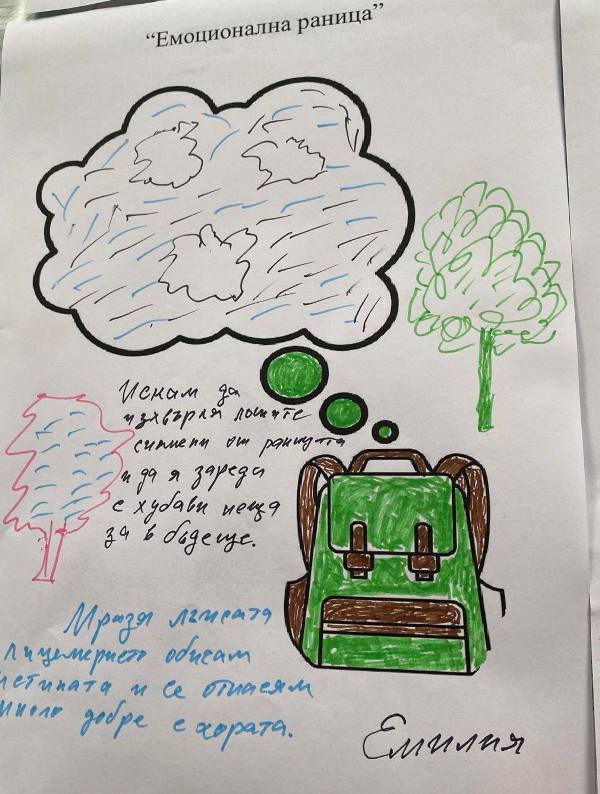 “Емоционална раница”
Искам да
изхвърля лошите
спомени от раницата
и да я заредя
с хубави неща
за в бъдеще.
Мразя лъжата
лицемерието обичам
истината и се отнасям
много добре с хората.
Емилия